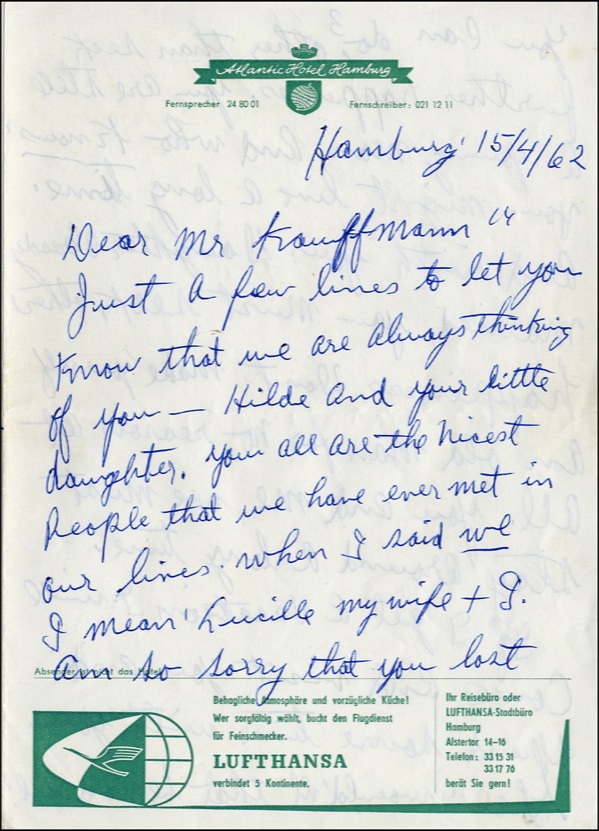 Atlantic Hotel Hamburg
Fernsprecher 24 80 01 Fernschreiber: 021 12 11
Hamburg 15/4/62
Dear Mr Kauffmann
Just A few lines to let you
Know that we are Always thinking
of you — Hilde And your little
daughter. you all are the Nicest
People that we have ever met in
our lives. when I said we
I mean' Lucille my wife + I.
Am so sorry that you lost
Absender ist nicht das Hotel
Behagliche Atmosphäre und vorzügliche Küche!
Wer sorgfältig wählt, bucht den Flugdienst
für Feinschmecker.
LUFTHANSA
verbindet 5 Kontinente.
Ihr Reisebüro oder
LUFTHANSA-Stadtbüro
Hamburg
Alstertor 14-16
Telefon: 33 15 31
33 17 76
berät Sie gern!